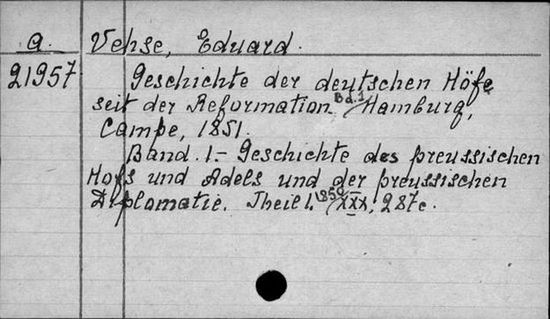 a. Vehse, Eduard.
21957 Geschichte der deutschen Höfe
seit der Reformation. Bd. 1 Hamburg,
Campe, 1851.
Band. 1.- Geschichte des preussischen
Hofs und Adels und der preussischen
Diplomatie. Theil 1. 1850 XXX, 287 c.